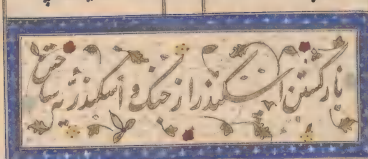 بازگشتن اسکندر از جنگ و اسکندریه ساختن